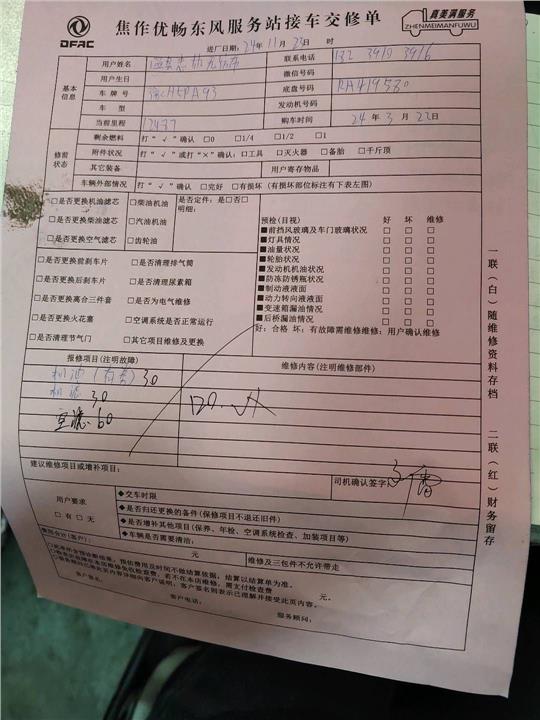 DFAC
焦作优畅东风服务站接车交修单
真美满服务
ZHENMEIMANFUWU
进厂日期：24年11月23日 时
基本信息
用户姓名
联系电话
用户生日 微信号码
车牌号 底盘号码 RA419580
车型 发动机号码
当前里程 购车时间 24年3月22日
修前状态
剩余燃料 打“√”确认 □0 □1/4 □1/2 □1
附件状况 打“√”或打“×”确认：□工具 □灭火器 □备胎 □千斤顶
其它装备 用户寄存物品
车辆外部情况 打“√”确认 □完好 □有损坏（有损坏部位标注有下表左图）
□是否更换机油滤芯 □柴油机油 是否定件：是□否□
明细：
□是否更换柴油滤芯 □汽油机油
□是否更换空气滤芯 □齿轮油
□是否更换前刹车片 □是否清理排气筒
□是否更换后刹车片 □是否清理尿素箱
□是否更换离合三件套 □是否为电气维修
□是否更换火花塞 □空调系统是否正常运行
□是否清理节气门 □其它项目维修及更换
预检（目视） 好 坏 维修
■前挡风玻璃及车门玻璃状况 □ □ □
■灯具情况 □ □ □
■油量状况 □ □ □
■轮胎状况 □ □ □
■发动机机油状况 □ □ □
■防冻防锈瓶状况 □ □ □
■制动液液面 □ □ □
■动力转向液液面 □ □ □
■变速箱漏油情况 □ □ □
■后桥漏油情况 □ □ □
好：合格 坏：有故障需维修维修：用户确认维修
报修项目（注明故障） 维修内容（注明维修部件）
机滤 30
空滤 60
120.
建议维修项目或增补项目：
司机确认签字：
用户要求
□有 □无
◆交车时限
◆是否归还更换的备件（保修项目不退还旧件）
◆是否增补其他项目（保养、年检、空调系统检查、加装项目等）
◆车辆是否需要清洁：
元
维修及三包件不允许带走
元。
客户签名：
客户电话：
服务顾问：
一联（白）随维修资料存档 二联（红）财务留存